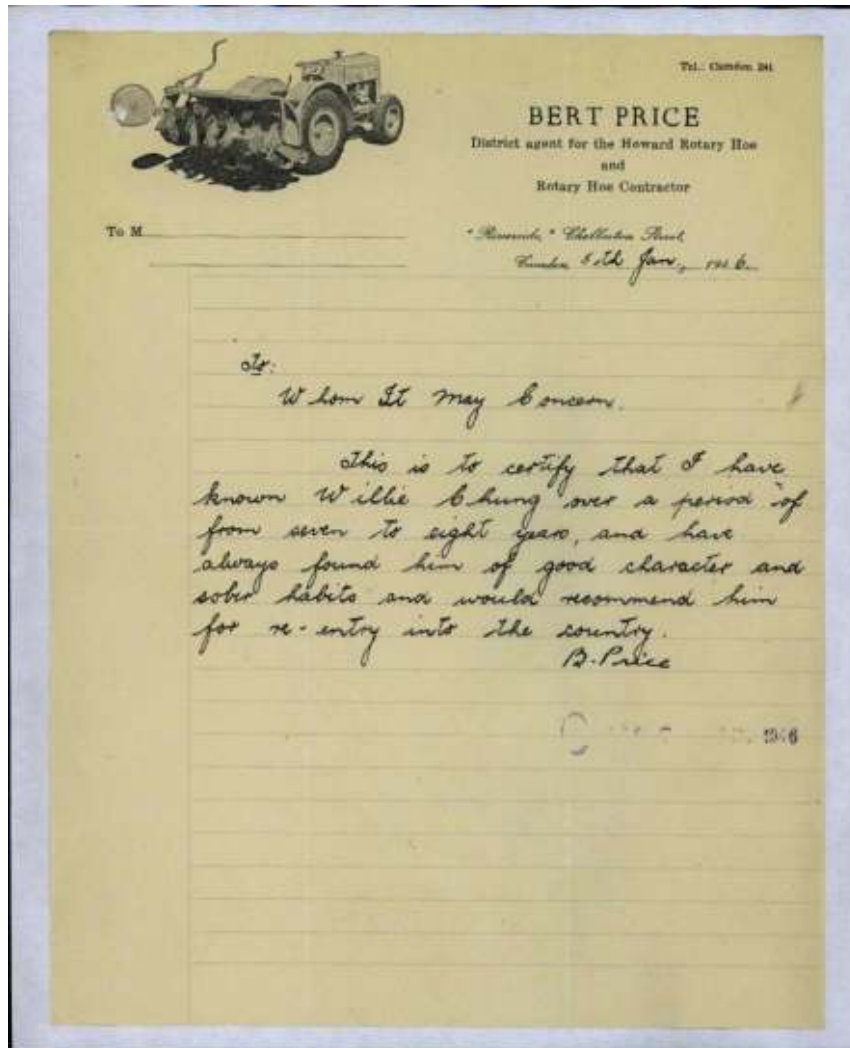 Tel.: Camden 241
BERT PRICE
District agent for the Howard Rotary Hoe
and
Rotary Hoe Contractor
To M
"Riverside," Chellaston Street,
Camden 5th Jan, 1946.
To:
Whom It May Concern.
This is to certify that I have
known Willie Chung over a period of
from seven to eight years, and have
always found him of good character and
sober habits and would recommend him
for re-entry into the country.
B. Price
1946